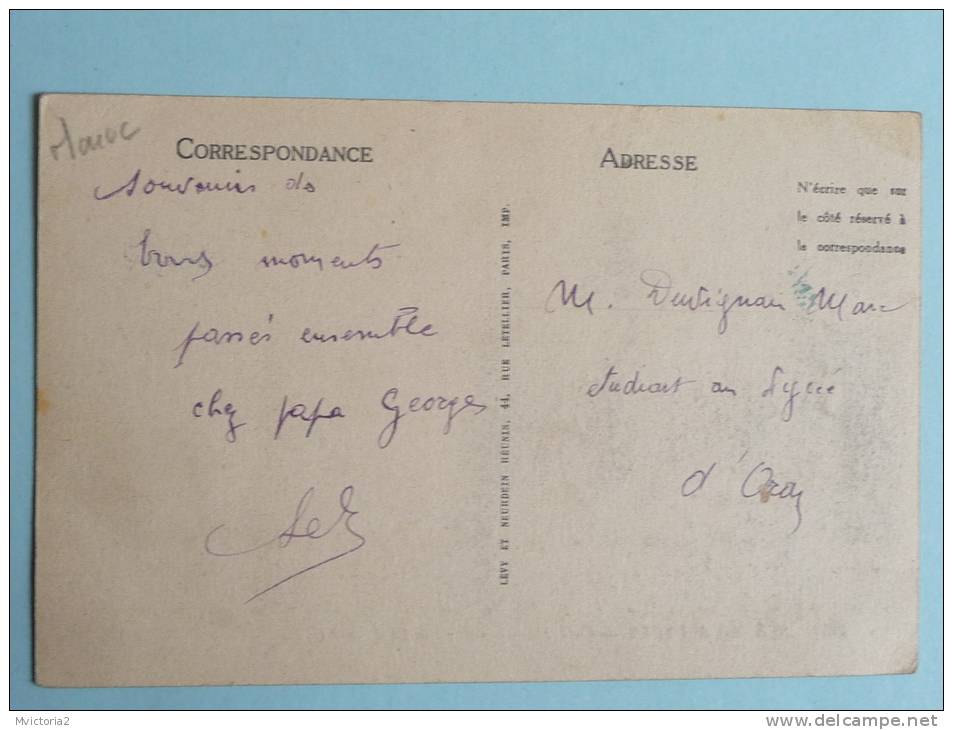 Maroc
CORRESPONDANCE
Souvenirs des
bons moments
passés ensemble
chez papa Georges
LEVY ET NEURDEIN RÉUNIS, 44, RUE LETELLIER, PARIS, IMP.
ADRESSE
N'écrire que sur
le côté réservé à
la correspondance
M. Duvignau Marc
étudiant au Lycée
d'Oran
Mvictoria2
www.delcampe.net